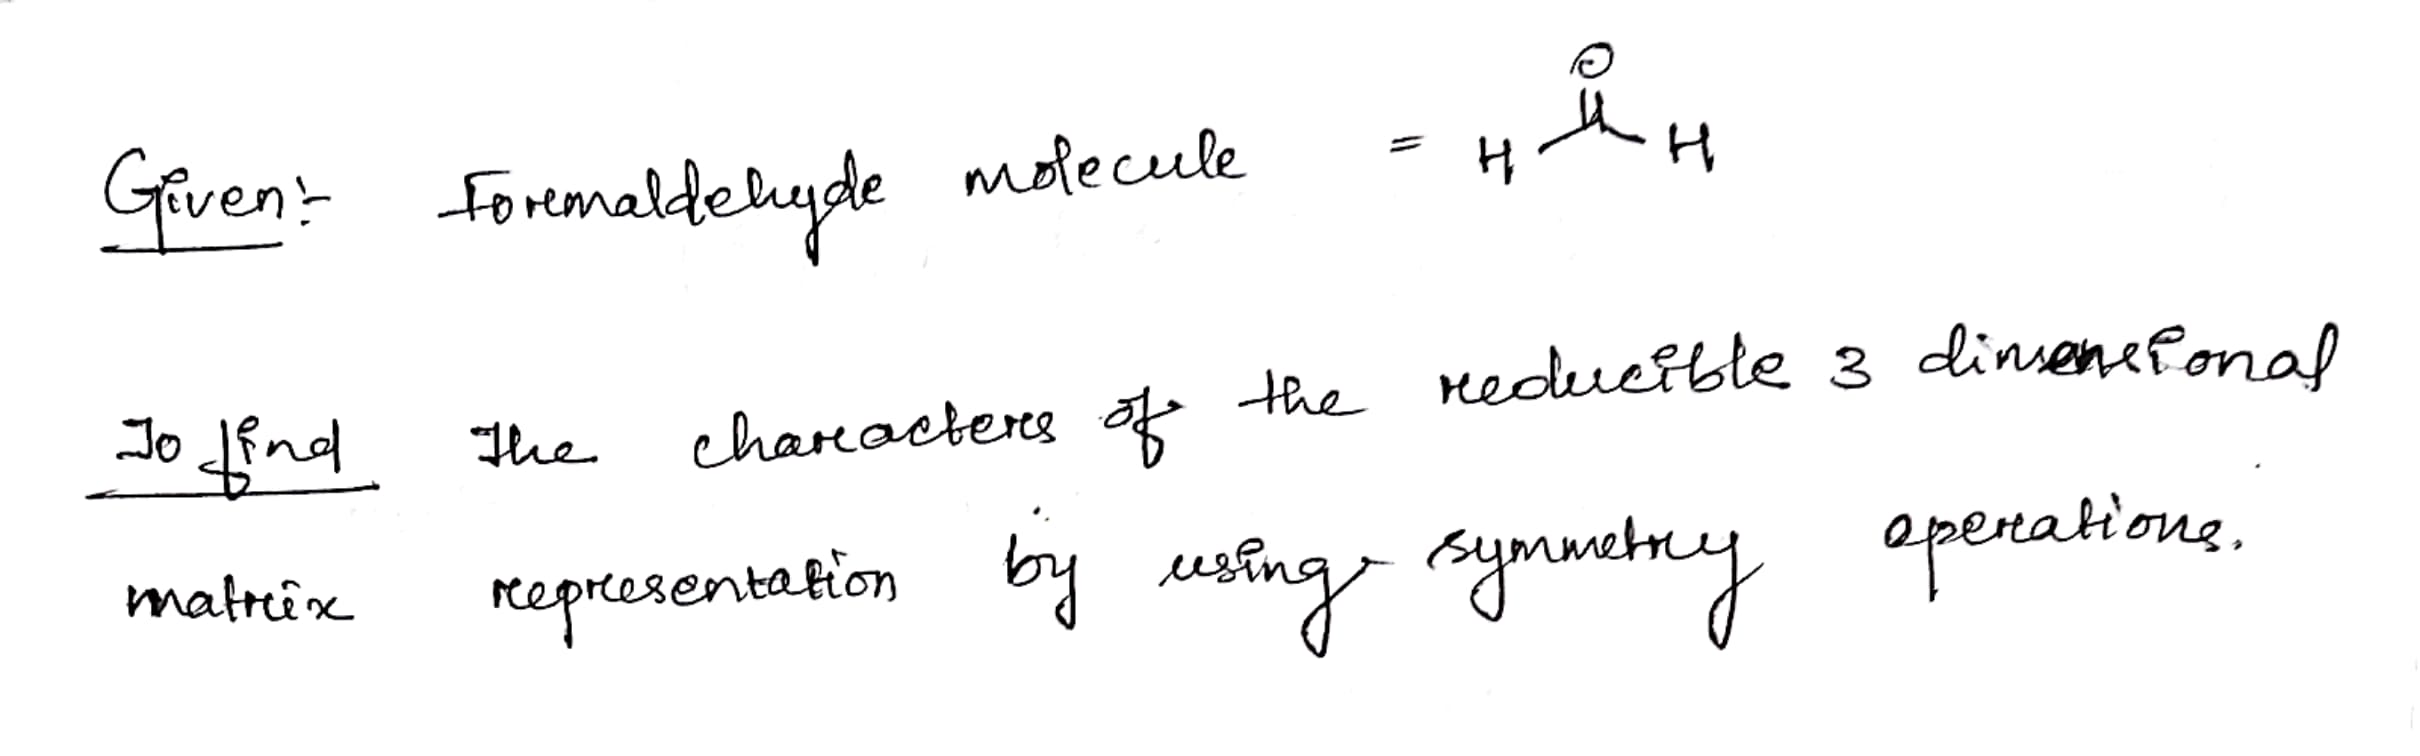 O
Given:- Formaldehyde molecule = H H
To find The characters of the reducible 3 dimensional
matrix representation by using symmetry operations.